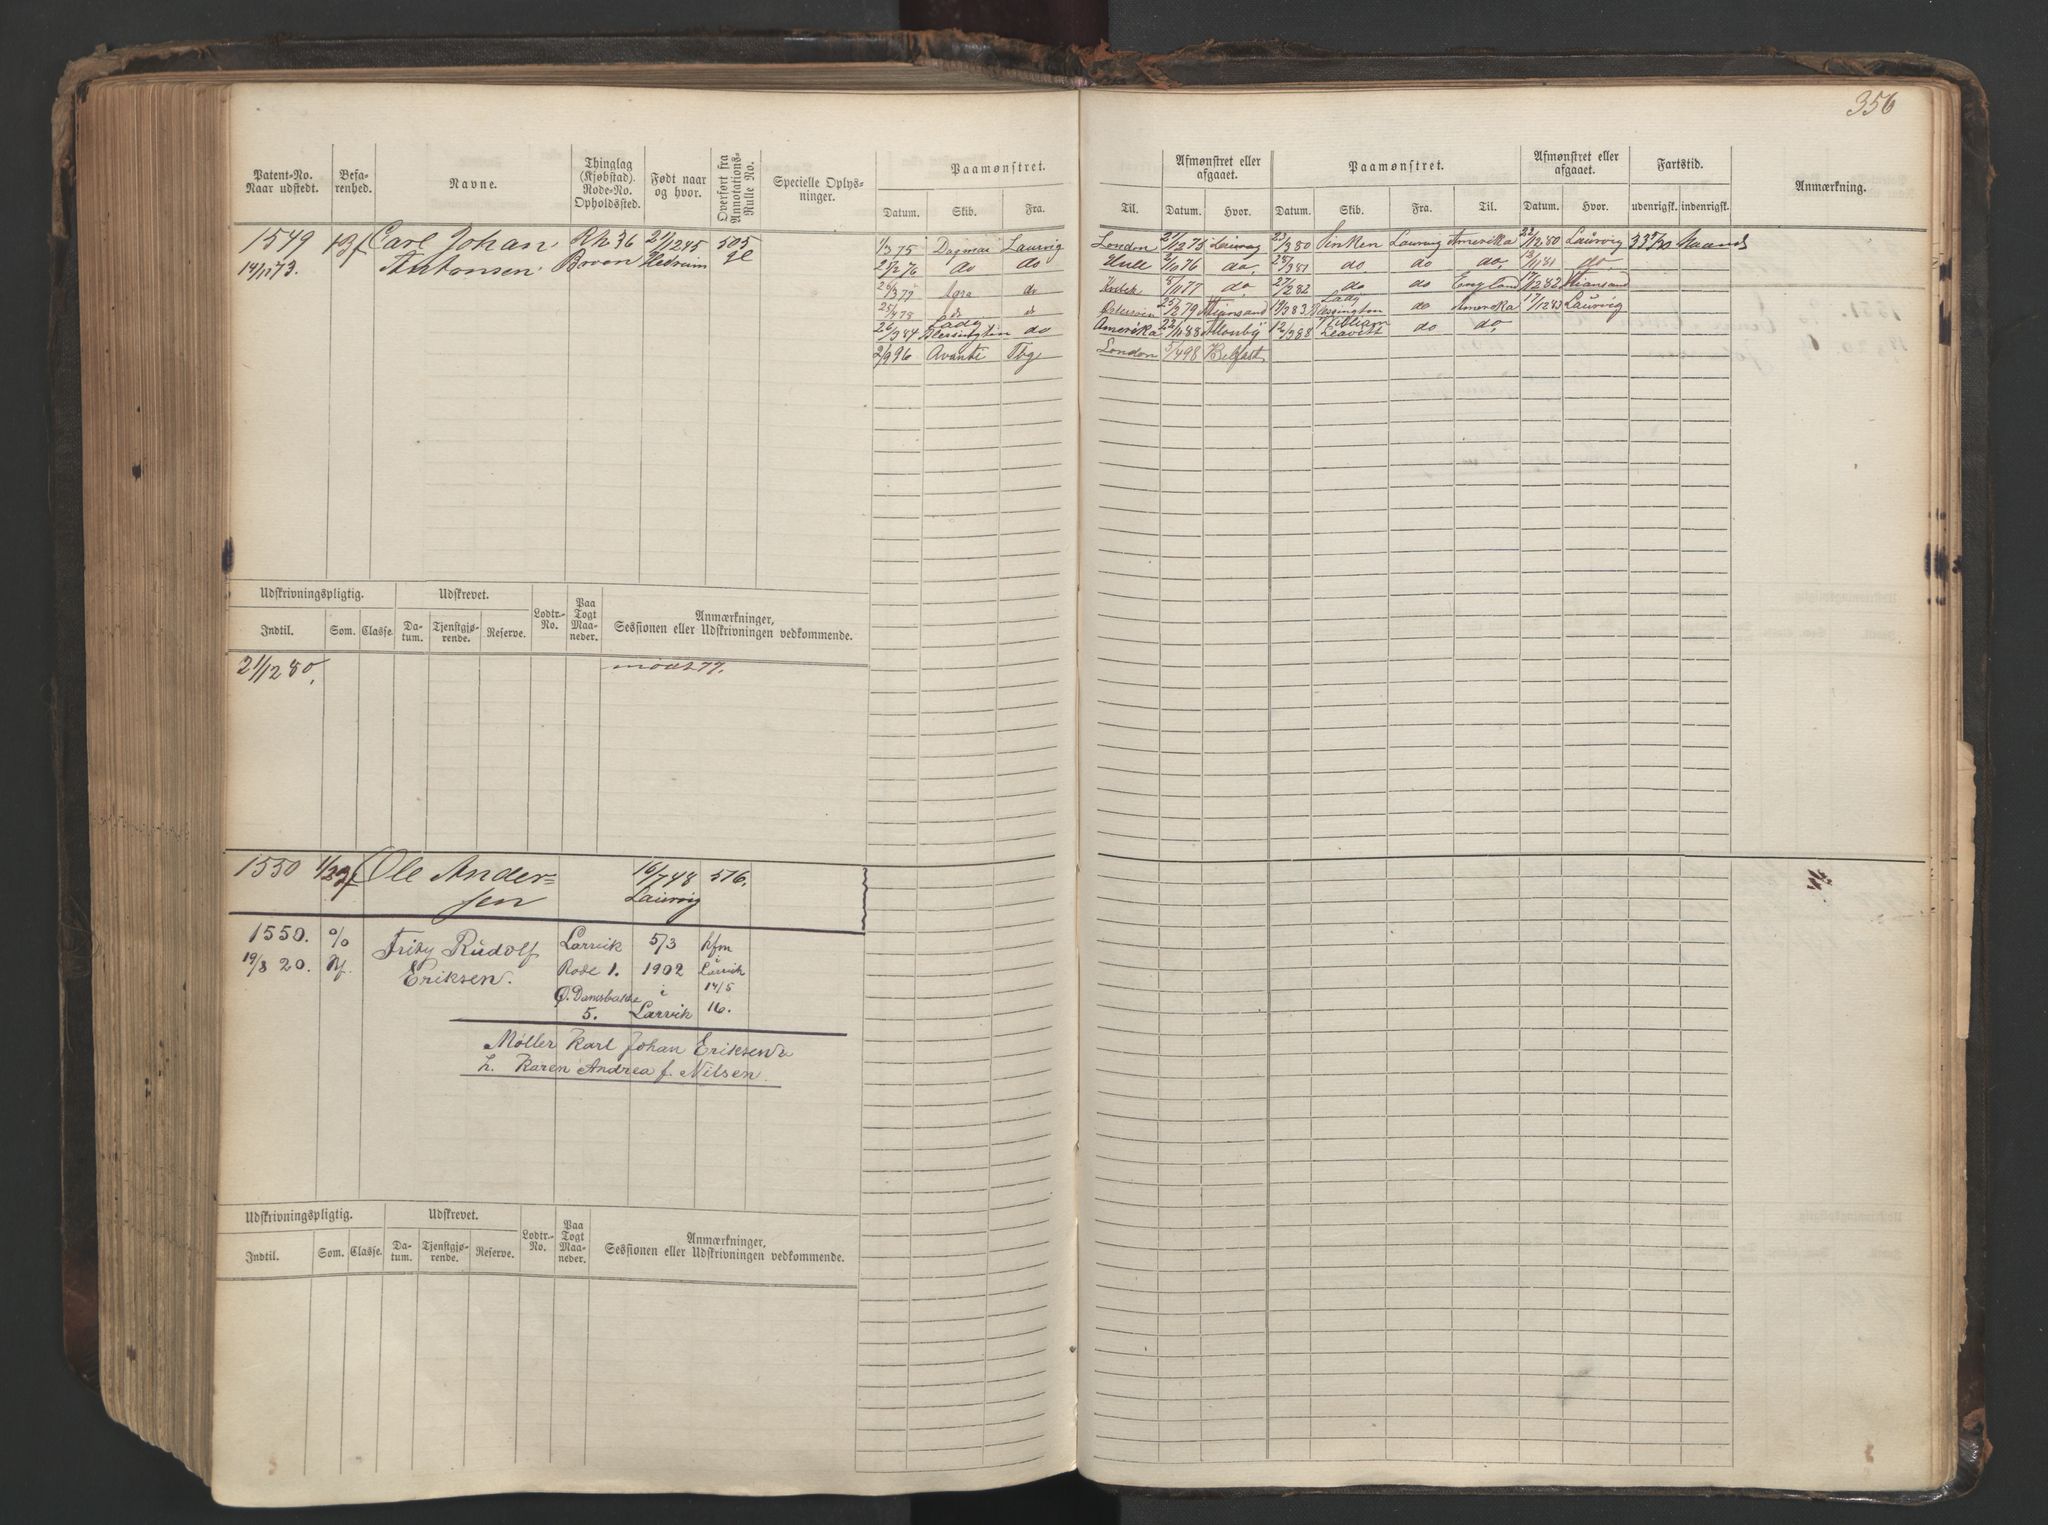 356
Patent-No. Naar udstedt.
Befarenhed.
Navne.
Thinglag (Kjøbstad). Rode-No. Opholdssted.
Født naar og hvor.
Overført fra Annotations-Rulle No.
Specielle Oplysninger.
Paamønstret.
Datum. Skib. Fra. Til.
Afmønstret eller afgaaet.
Datum. Hvor.
Paamønstret.
Datum. Skib. Fra. Til.
Afmønstret eller afgaaet.
Datum. Hvor.
Fartstid.
udenrigsk. indenrigsk.
Anmærkning.
1549 Carl Johan Rh 36 21/12 45 505
14/11 73. Antonsen. Hedrum
1/3 75 Dagmar Laurvig London 21/12 75 Laurvig 23/3 80 Laurvig Amerika 22/12 80 Laurvig
2/2 76 do do Hull 2/10 76 do. 25/3 81 do do do. do.
Agra 8/11 77 do. 27/2 82 do do England 17/2 82 Xiansand
Østersøen 25/2 79 Xiansand 19/3 83 Lady Blessington do Amerika 17/12 83 Laurvig
26/3 84 Lady Blessington do Amerika 22/1 88 12/3 88 William Leavitt do do.
2/9 96 Avanti Tbg London 5/4 98 Belfast
Udskrivningspligtig.
Indtil. Som. Classe.
Udskrevet.
Datum. Tjenstgjørende. Reserve.
Lodtr.-No.
Paa Togt Maaneder.
Anmærkninger, Sessionen eller Udskrivningen vedkommende.
21/12 80. mødt 77.
1550 Ole Ander- 16/7 48 516.
sen Laurvig
1550. % Fritz Rudolf Larvik 5/3 hfm
19/8 20. Eriksen. Rode 1. 1902 i Larvik
Ø. Damsbakke i 14/5
5. Larvik 16.
Møller Karl Johan Eriksen
h. Karen Andrea f. Nilsen.
Udskrivningspligtig.
Indtil. Som. Classe.
Udskrevet.
Datum. Tjenstgjørende. Reserve.
Lodtr.-No.
Paa Togt Maaneder.
Anmærkninger, Sessionen eller Udskrivningen vedkommende.